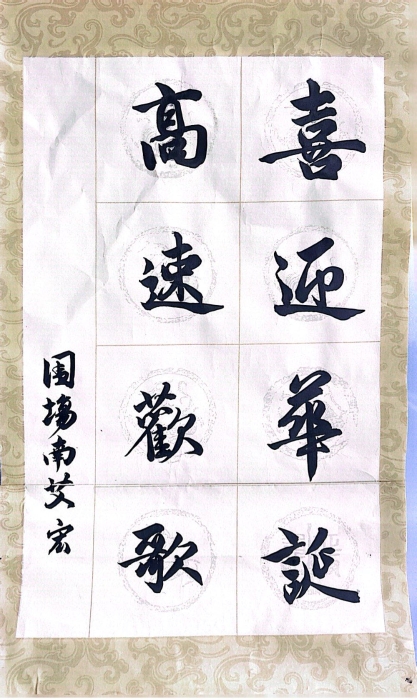 喜迎華誕
高速歡歌
圍場南艾宏